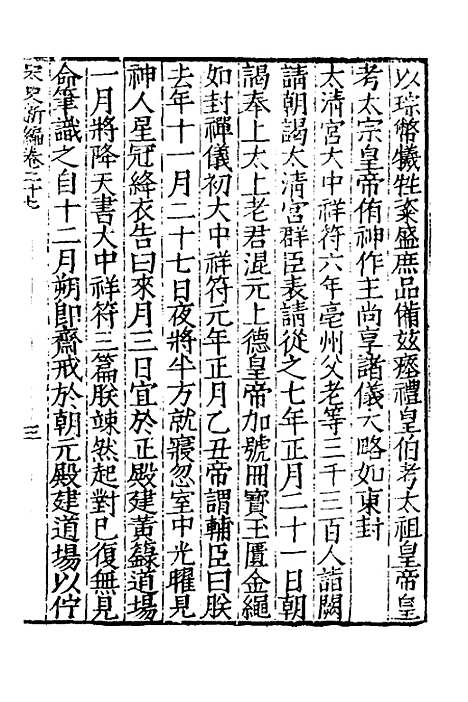 以琮幣犧牲粢盛庶品備茲瘞禮皇伯考太祖皇帝皇
考太宗皇帝侑神作主尚享諸儀大略如東封
太清宮大中祥符六年亳州父老等三千三百人詣闕
請朝謁太清宮群臣表請從之七年正月二十一日朝
謁奉上太上老君混元上德皇帝加號冊寶玉匱金繩
如封禪儀初大中祥符元年正月乙丑帝謂輔臣曰朕
去年十一月二十七日夜將半方就寢忽室中光曜見
神人星冠絳衣告曰來月三日宜於正殿建黃籙道場
一月將降天書大中祥符三篇朕竦然起對已復無見
命筆識之自十二月朔即齋戒於朝元殿建道場以佇
宋史新編卷二十七
三